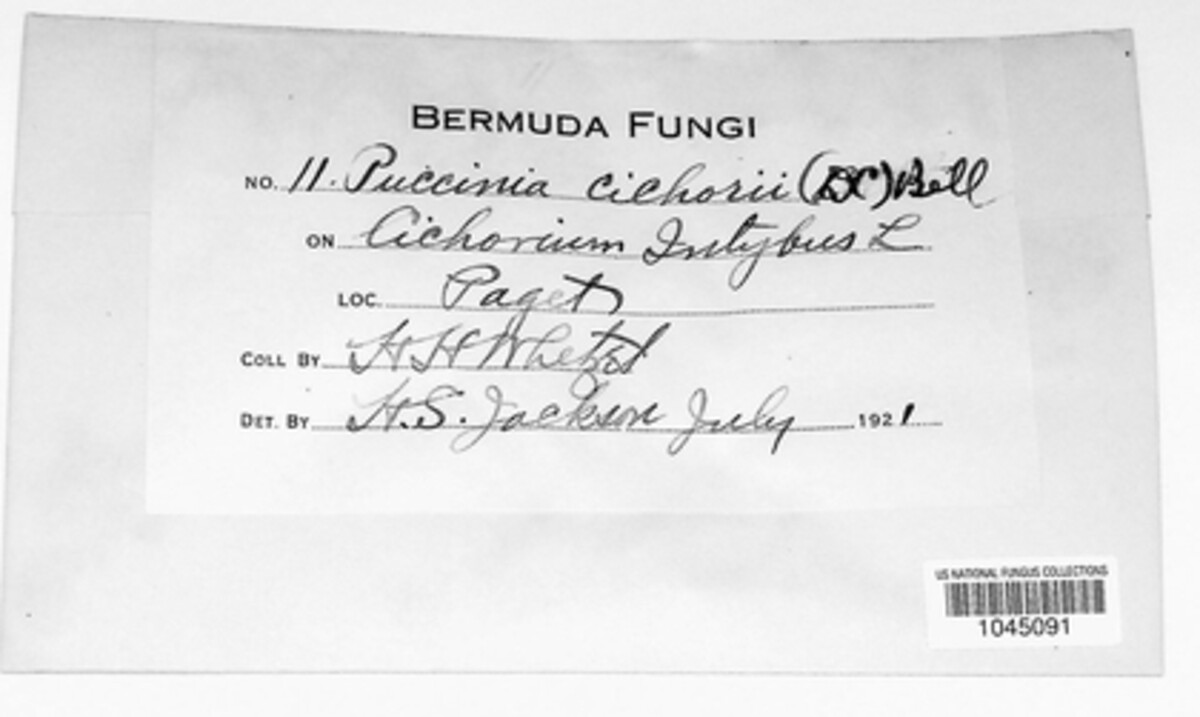 BERMUDA FUNGI
NO. 11. Puccinia cichorii (DC) Bell
ON Cichorium Intybus L
LOC. Paget
COLL BY H H Whetzel
DET. BY H.S. Jackson July 1921
US NATIONAL FUNGUS COLLECTIONS
1045091